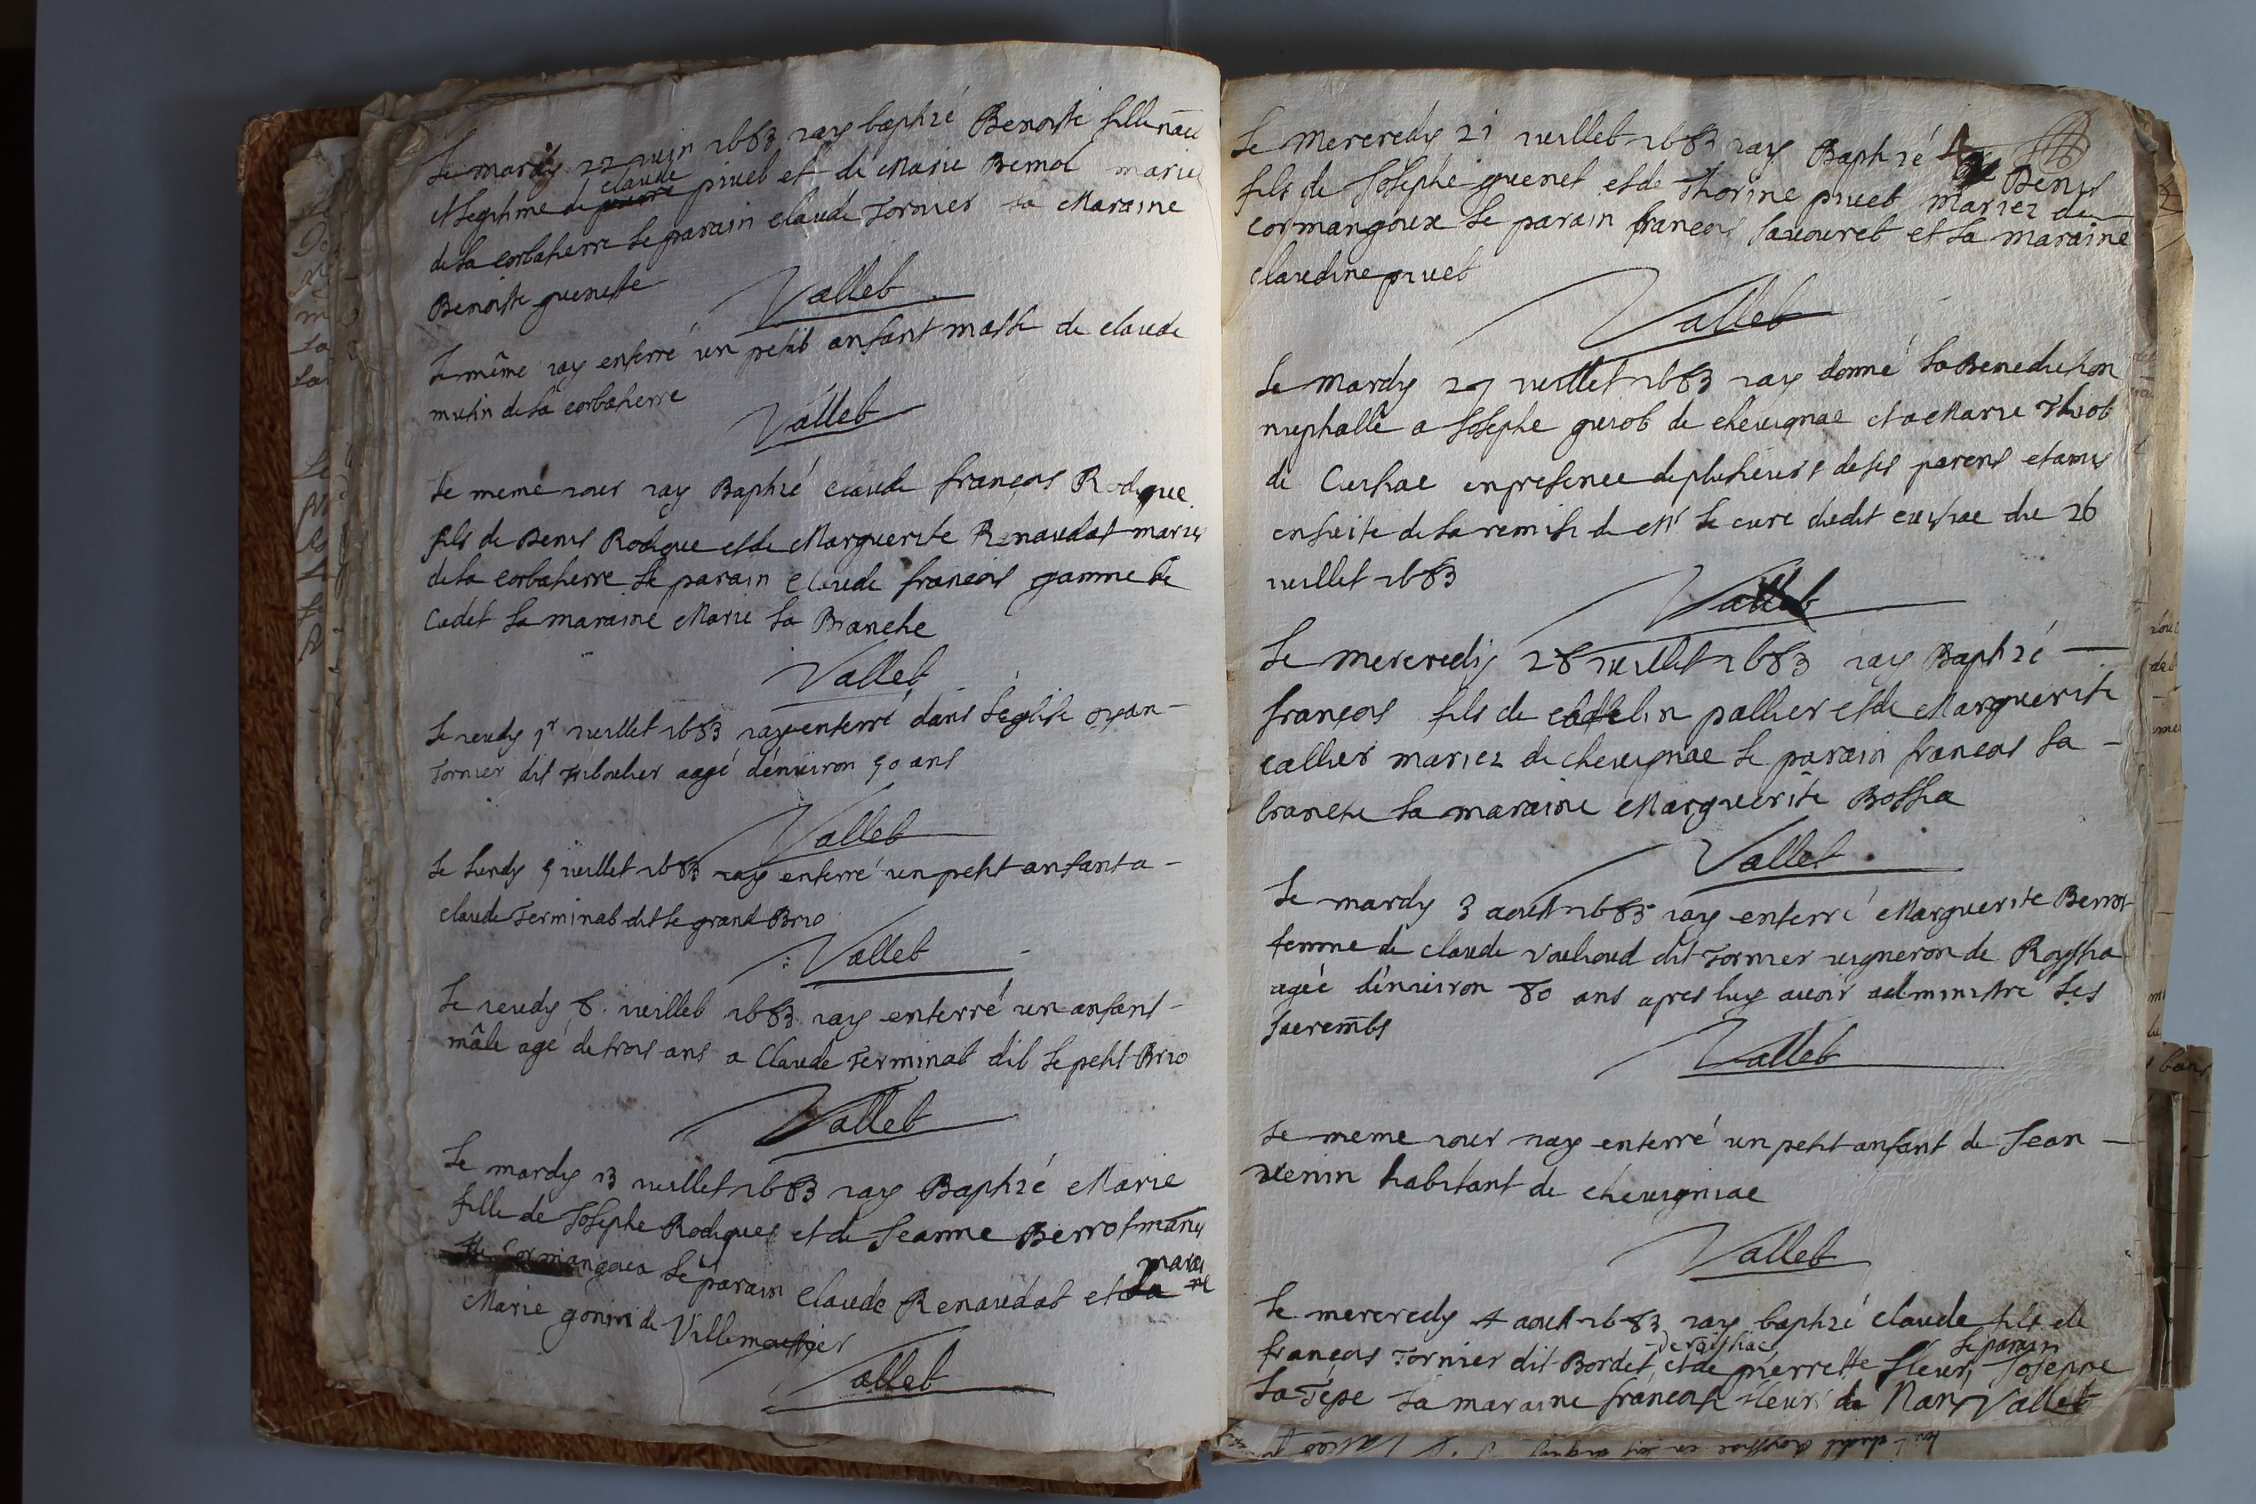 Le mardy 22 juin 1683 jay baptizé Benoite fille née
claude
et legitime de pierre pivet et de Marie Bernol mariez
de la corbatierre le parain claude Tornier la Maraine
Benoite guenette
Vallet
Le même jay enterré un petit anfant masle de claude
mutin de la corbatierre
Vallet
Le meme jour jay Baptizé claude françois Rodigue
fils de Denis Rodigue et de Marguerite Renaudat mariez
de la corbatierre le parain Claude françois gamme le
Cadet la maraine Marie la Branche
Vallet
Le jeudy 1r juillet 1683 jay enterré dans l'église oyan-
Tornier dit aagé d'environ 50 ans
Vallet
Le lundy 5 juillet 1683 jay enterré un petit anfant a -
claude Terminat dit le grand Brio
Vallet
Le jeudy 8. juillet 1683 jay enterré un anfant -
mâle agé de trois ans a Claude Terminat dit le petit Brio
Vallet
Le mardy 13 juillet 1683 jay Baptizé Marie
fille de Josephe Rodigues et de Jeanne Berrot mariez
de Cormangoux le parain Claude Renaudat et la marai
ne
Marie gonin de Villemoutier
Vallet
Le Mercredy 21 juillet 1683 jay Baptizé Denis
fils de Josephe guenet et de Thorine pivet mariez de
cormangoux le parain françois Savouret et la maraine
claudine pivet
Vallet
Le mardy 27 juillet 1683 jay donné la Benediction
nuptialle a Josephe guiot de chevignae et a Marie Thiot
de Cuisiae en presence de plusieurs de ses parens et amis
ensuite de la remise de Mr le curé dudit cuisiae du 26
juillet 1683
Vallet
Le mercredy 28 juillet 1683 jay Baptizé —
françois fils de pallier et de Marguerite
callier mariez de chevignae le parain françois la -
branche la maraine Marguerite Bossia
Vallet
Le mardy 3 aoust 1683 jay enterré Marguerite Berrot
femme de claude vouhoud dit Tornier vigneron de Royssia
agée d'environ 80 ans apres luy avoir administré les
sacremts
Vallet
Le meme jour jay enterré un petit anfant de Jean -
venin habitant de chevigniae
Vallet
Le mercredy 4 aoust 1683 jay baptizé claude fils de
françois Tornier dit Bordet, et de pierrette fleur, le parain Josephe
la Tepe la maraine françoise fleur de Nan Vallet